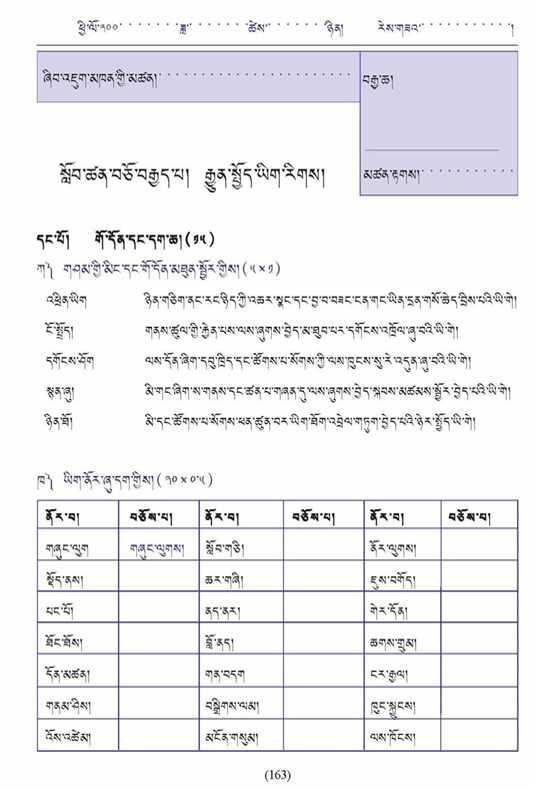 ཕྱི་ལོ་༢༠༠་་་་་་་ཟླ་་་་་་་་ཚེས་་་་་་་ཉིན། རེས་གཟའ་་་་་་་་་་་།
ཞིབ་འཇུག་མཁན་གྱི་མཚན།་་་་་་་་་་་་་་་་་་་་་་་་་
བརྒྱ་ཆ།
སློབ་ཚན་བཅོ་བརྒྱད་པ། རྒྱུན་སྤྱོད་ཡིག་རིགས།
མཚན་རྟགས།་་་་་་་་་་་
དང་པོ། གོ་དོན་དང་དག་ཆ། (༡༥)
ཀ༽ གཤམ་གྱི་མིང་དང་གོ་དོན་མཐུན་སྦྱོར་གྱིས། (༥ x ༡)
འཕྲིན་ཡིག ཉིན་གཅིག་ནང་རང་ཉིད་ཀྱི་འཆར་སྣང་དང་བྱ་བ་བཟང་ངན་གང་ཡིན་དྲན་གསོ་ཆེད་བྲིས་པའི་ཡི་གེ།
ངོ་སྤྲོད། གནས་ཚུལ་གྱི་རྐྱེན་པས་ལས་ཞུགས་བྱེད་མ་ཐུབ་པར་དགོངས་འཁྲོལ་ཞུ་བའི་ཡི་གེ།
དགོངས་ཤོག ལས་དོན་ཞིག་དབུ་ཁྲིད་དང་ཚོགས་པ་སོགས་ཀྱི་ལས་ཁུངས་སུ་རེ་འདུན་ཞུ་བའི་ཡི་གེ།
སྙན་ཞུ། མི་གང་ཞིག་ས་གནས་དང་ཚན་པ་གཞན་དུ་ལས་ཞུགས་བྱེད་སྐབས་མཚམས་སྦྱོར་བྱེད་པའི་ཡི་གེ།
ཉིན་ཐོ། མི་དང་ཚོགས་པ་སོགས་ཕན་ཚུན་བར་ཡིག་ཐོག་འབྲེལ་གཏུག་བྱེད་པའི་ཉེར་སྤྱོད་ཡི་གེ།
ཁ༽ ཡིག་ནོར་ཞུ་དག་གྱིས། (༢༠ x ༠.༥)
ནོར་བ། བཅོས་པ། ནོར་བ། བཅོས་པ། ནོར་བ། བཅོས་པ།
གཞུང་ལུག གཞུང་ལུགས། སློབ་གཅི། ནོར་ལུགས།
སྡོད་ནས། ཆར་གཞི། ཇུས་བགོད།
པང་པོ། ནད་ནར། གེར་དོན།
ཐོང་ཐོས། བློ་ནད། ཆགས་གྲུམ།
དོན་མཚན། གན་བདག ངར་རྒྱལ།
གནམ་ཤིས། བསྒྲིགས་ལམ། ཁུང་སྐྱུངས།
འོས་འཚེམ། མངོན་གསུམ། ལས་ཁོངས།
(163)